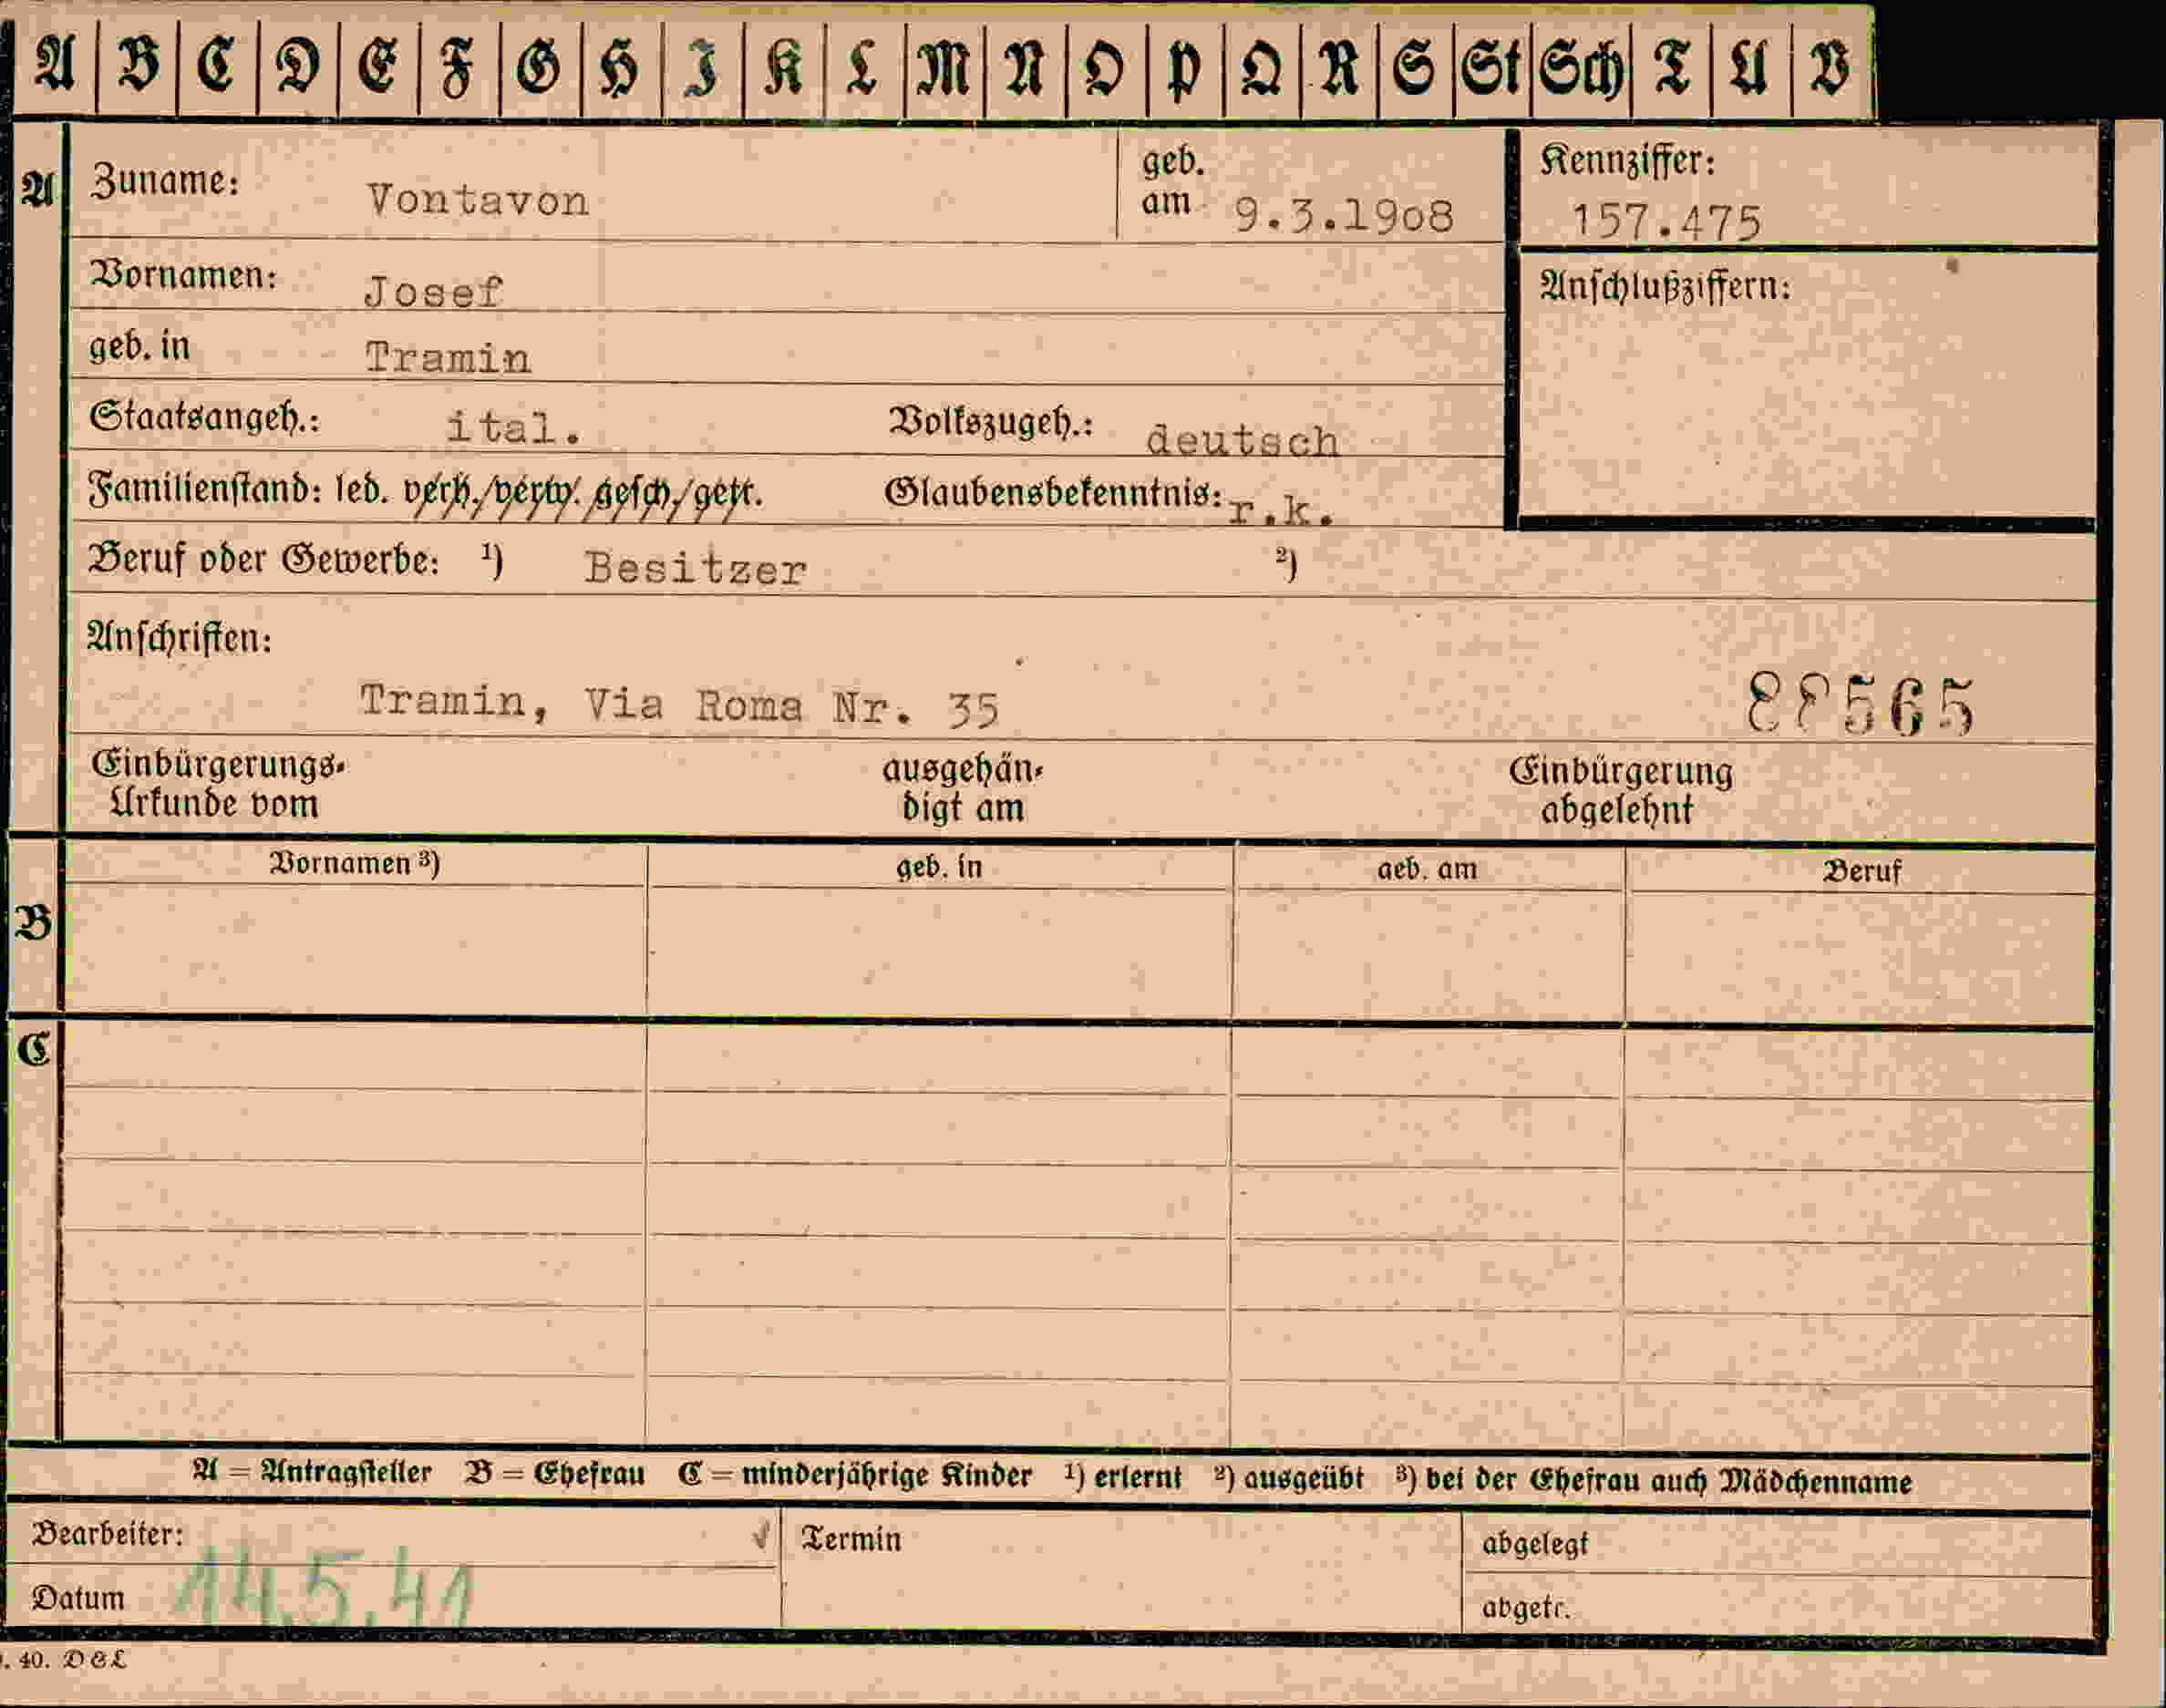 A B C D E F G H I K L M N O P Q R S St Sch T U V
A Zuname: Vontavon geb. am 9.3.1908 Kennziffer: 157.475
Vornamen: Josef Anschlußziffern:
geb. in Tramin
Staatsangeh.: ital. Volkszugeh.: deutsch
Familienstand: led. verh./verw. gesch./getr. Glaubensbekenntnis: r.k.
Beruf oder Gewerbe: 1) Besitzer 2)
Anschriften:
Tramin, Via Roma Nr. 35
Einbürgerungs- ausgehän- Einbürgerung
Urkunde vom digt am abgelehnt
Vornamen 3) geb. in geb. am Beruf
B
C
A = Antragsteller B = Ehefrau C = minderjährige Kinder 1) erlernt 2) ausgeübt 3) bei der Ehefrau auch Mädchenname
Bearbeiter: Termin abgelegt
Datum 14.5.41 abgetr.
. 40. D&L